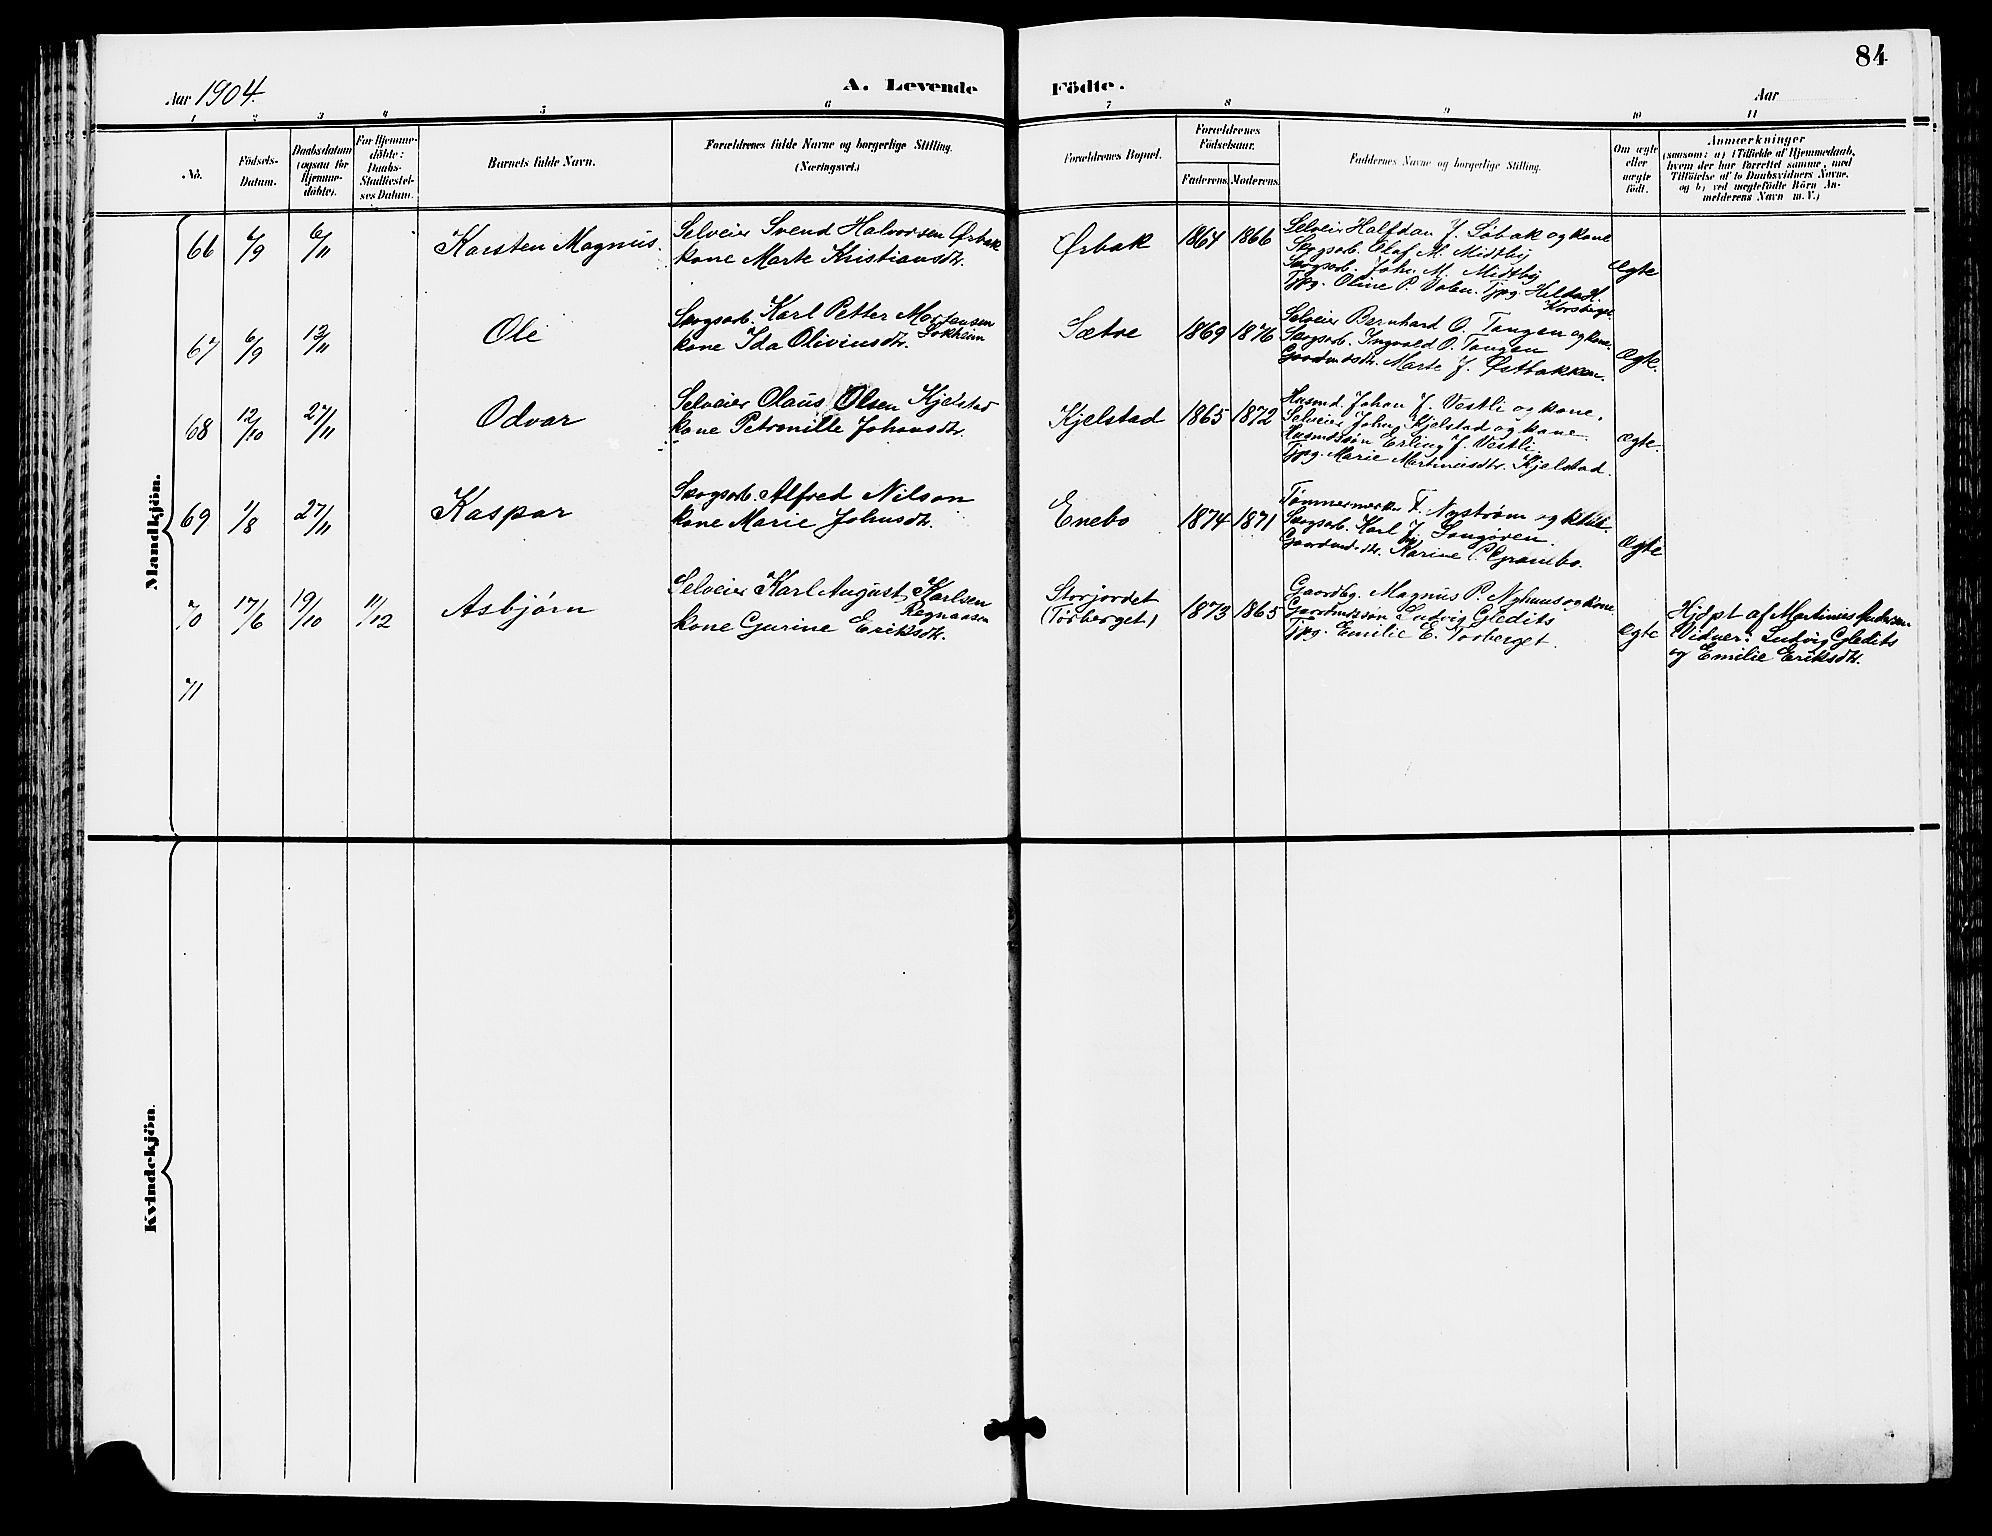 84
Aar 1904.
A. Levende Födte.
Aar
1 2 3 4 5 6 7 8 9 10 11
No.
Födsels-
Datum.
Daabsdatum
(ogsaa for
Hjemme-
döbte).
For Hjemme-
döbte:
Daabs-
Stadfæstel-
ses Datum.
Barnets fulde Navn.
Forældrenes fulde Navne og borgerlige Stilling.
(Næringsvei.)
Forældrenes Bopæl.
Forældrenes
Födselsaar.
Faderens. Moderens.
Faddernes Navne og borgerlige Stilling.
Om ægte
eller
uægte
født.
Anmærkninger
(saasom: a) i Tilfælde af Hjemmedaab,
hvem der har forrettet samme, med
Tilföielse af to Daabsvidners Navne,
og b) ved uægtefödte Börn An-
melderens Navn m.V.)
Mandkjön.
66
/9
6/11
Karsten Magnus.
Selveier Svend Halvorsen Ørbak
kone Marte Kristiansdtr.
Ørbak
1864 1866
Selveier Halfdan J. Søbak og kone
Skogsarb. Olaf M. Midtby
Skogsarb. Joh. M. Midtby
Tjpg. Oline P. Tjpg. Hilda H.
Korsberget
Ægte
67
6/9
13/11
Ole
Skogsarb. Karl Petter Mortensen
kone Ida Oliviusdtr.
Sætre
1869 1876
Selveier Bernhard O. Tangen og kone.
Skogsarb. Ingvald O. Tangen
Gaardmdsdtr. Marte J. Østbakken.
Ægte.
68
12/10
27/11
Odvar
Selveier Olaus Olsen Kjelstad
kone Petronille Johansdtr.
Kjelstad
1865 1872
Husmd. Johan J. Vestli og kone.
Selveier John Kjelstad og kone
Husmdssøn Erling J. Vestli.
Tjpg. Marie Martiniusdtr. Kjelstad.
Ægte.
69
1/8
27/11
Kaspar
Skogsarb. Alfred Nilson
kone Marie Johnsdtr.
Enebo
1874 1871
Tømmermerker F. Nystrøm og kone.
Skogsarb. Karl J.
Gaardmdsdtr. Karine Grambo.
Ægte
70
17/6
19/10
11/12
Asbjørn
Selveier Karl August Karlsen
Regnaasen
kone Gurine Eriksdtr.
Storjordet
(Tørberget)
1873 1865
Gaardbg. Magnus P. Nyhuus og kone
Gaardmdssøn Ludvig Gledits
Tjpg. Emilie E. Tørberget.
Ægte
Hjdpt af Martinius Andersen
Vidner: Ludvig Gledits
og Emilie Eriksdtr.
71
Kvindekjön.